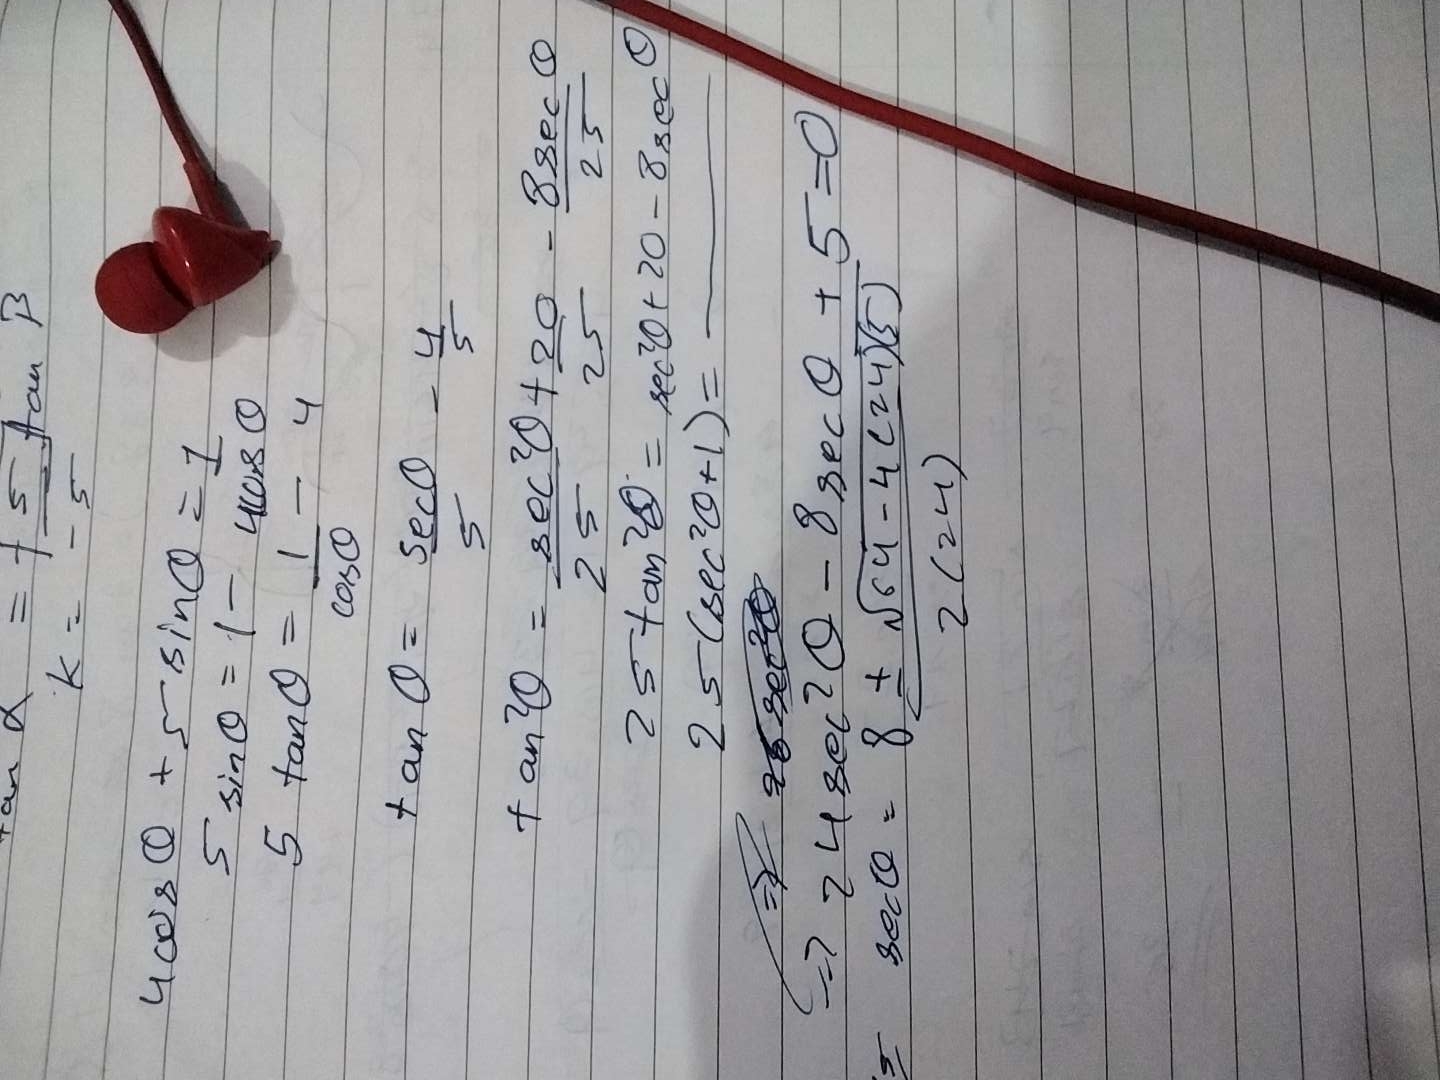 tan α = + 5 tan β
k = - 5
4cosθ + 5sinθ = 1
5 sinθ = 1 - 4cosθ
5 tanθ = 1/cosθ - 4
tanθ = secθ/5 - 4/5
tan²θ = sec²θ/25 + 20/25 - 8secθ/25
25tan²θ = sec²θ + 20 - 8secθ
25(sec²θ+1) = ———
=> 24sec²θ - 8secθ + 5 = 0
secθ = 8 ± √64 - 4(24)(5) / 2(24)